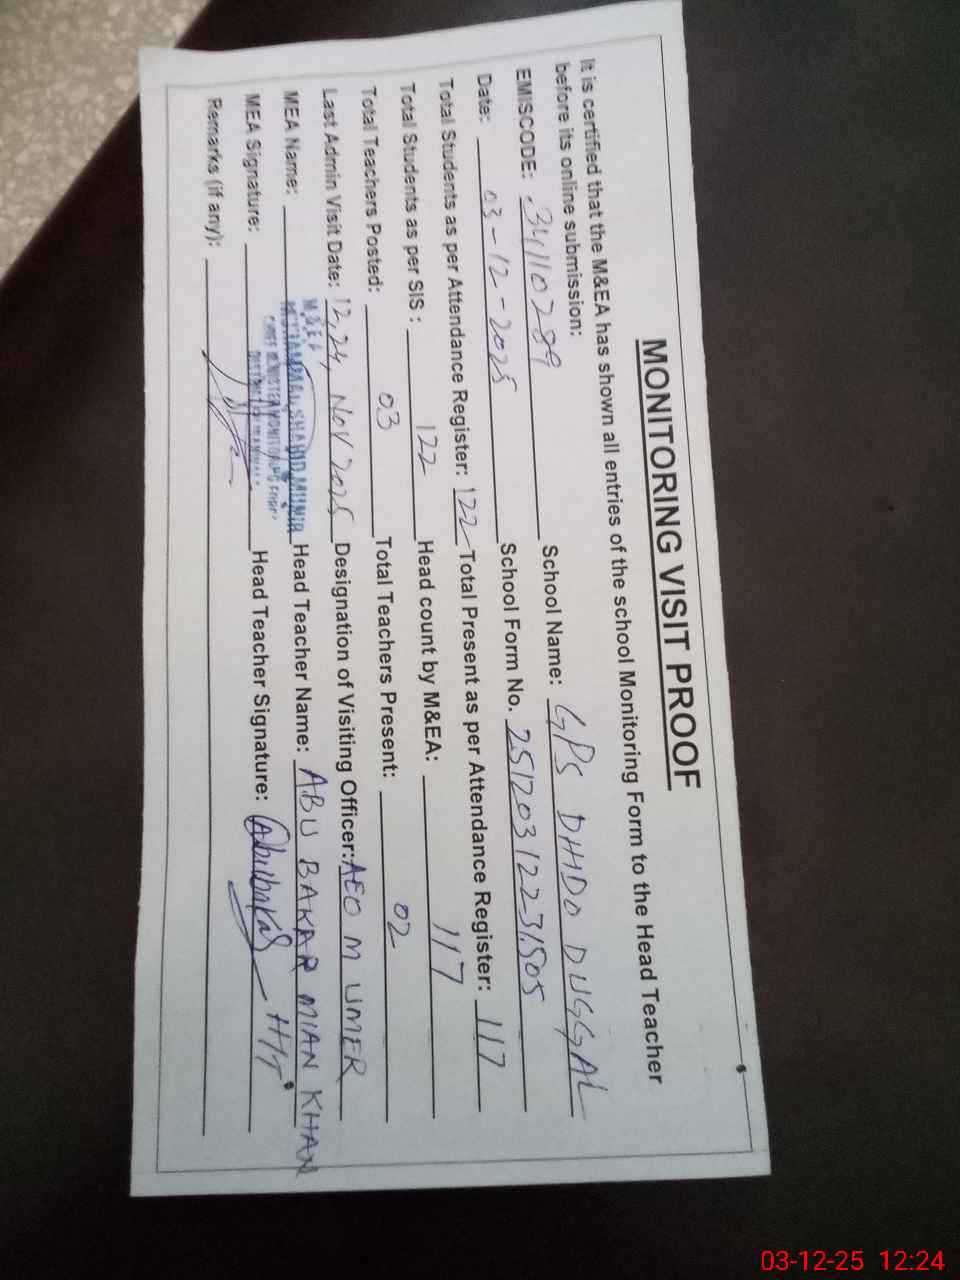 MONITORING VISIT PROOF
It is certified that the M&EA has shown all entries of the school Monitoring Form to the Head Teacher
before its online submission:
EMISCODE: 34110789 School Name: GPS DHDO DUGGAL
Date: 03-12-2025 School Form No. 25120312231505
Total Students as per Attendance Register: 122 Total Present as per Attendance Register: 117
Total Students as per SIS: 122 Head count by M&EA: 117
Total Teachers Posted: 03 Total Teachers Present: 02
Last Admin Visit Date: 12,24, NOV 2025 Designation of Visiting Officer: AEO M UMER
MEA Name: M&EA SHAHID MUNIR Head Teacher Name: ABU BAKAR MIAN KHAN
CHIEF MINISTER MONITORING FORCE
MEA Signature: DISTRICT Head Teacher Signature: Abubakar HT
Remarks (if any):
03-12-25 12:24